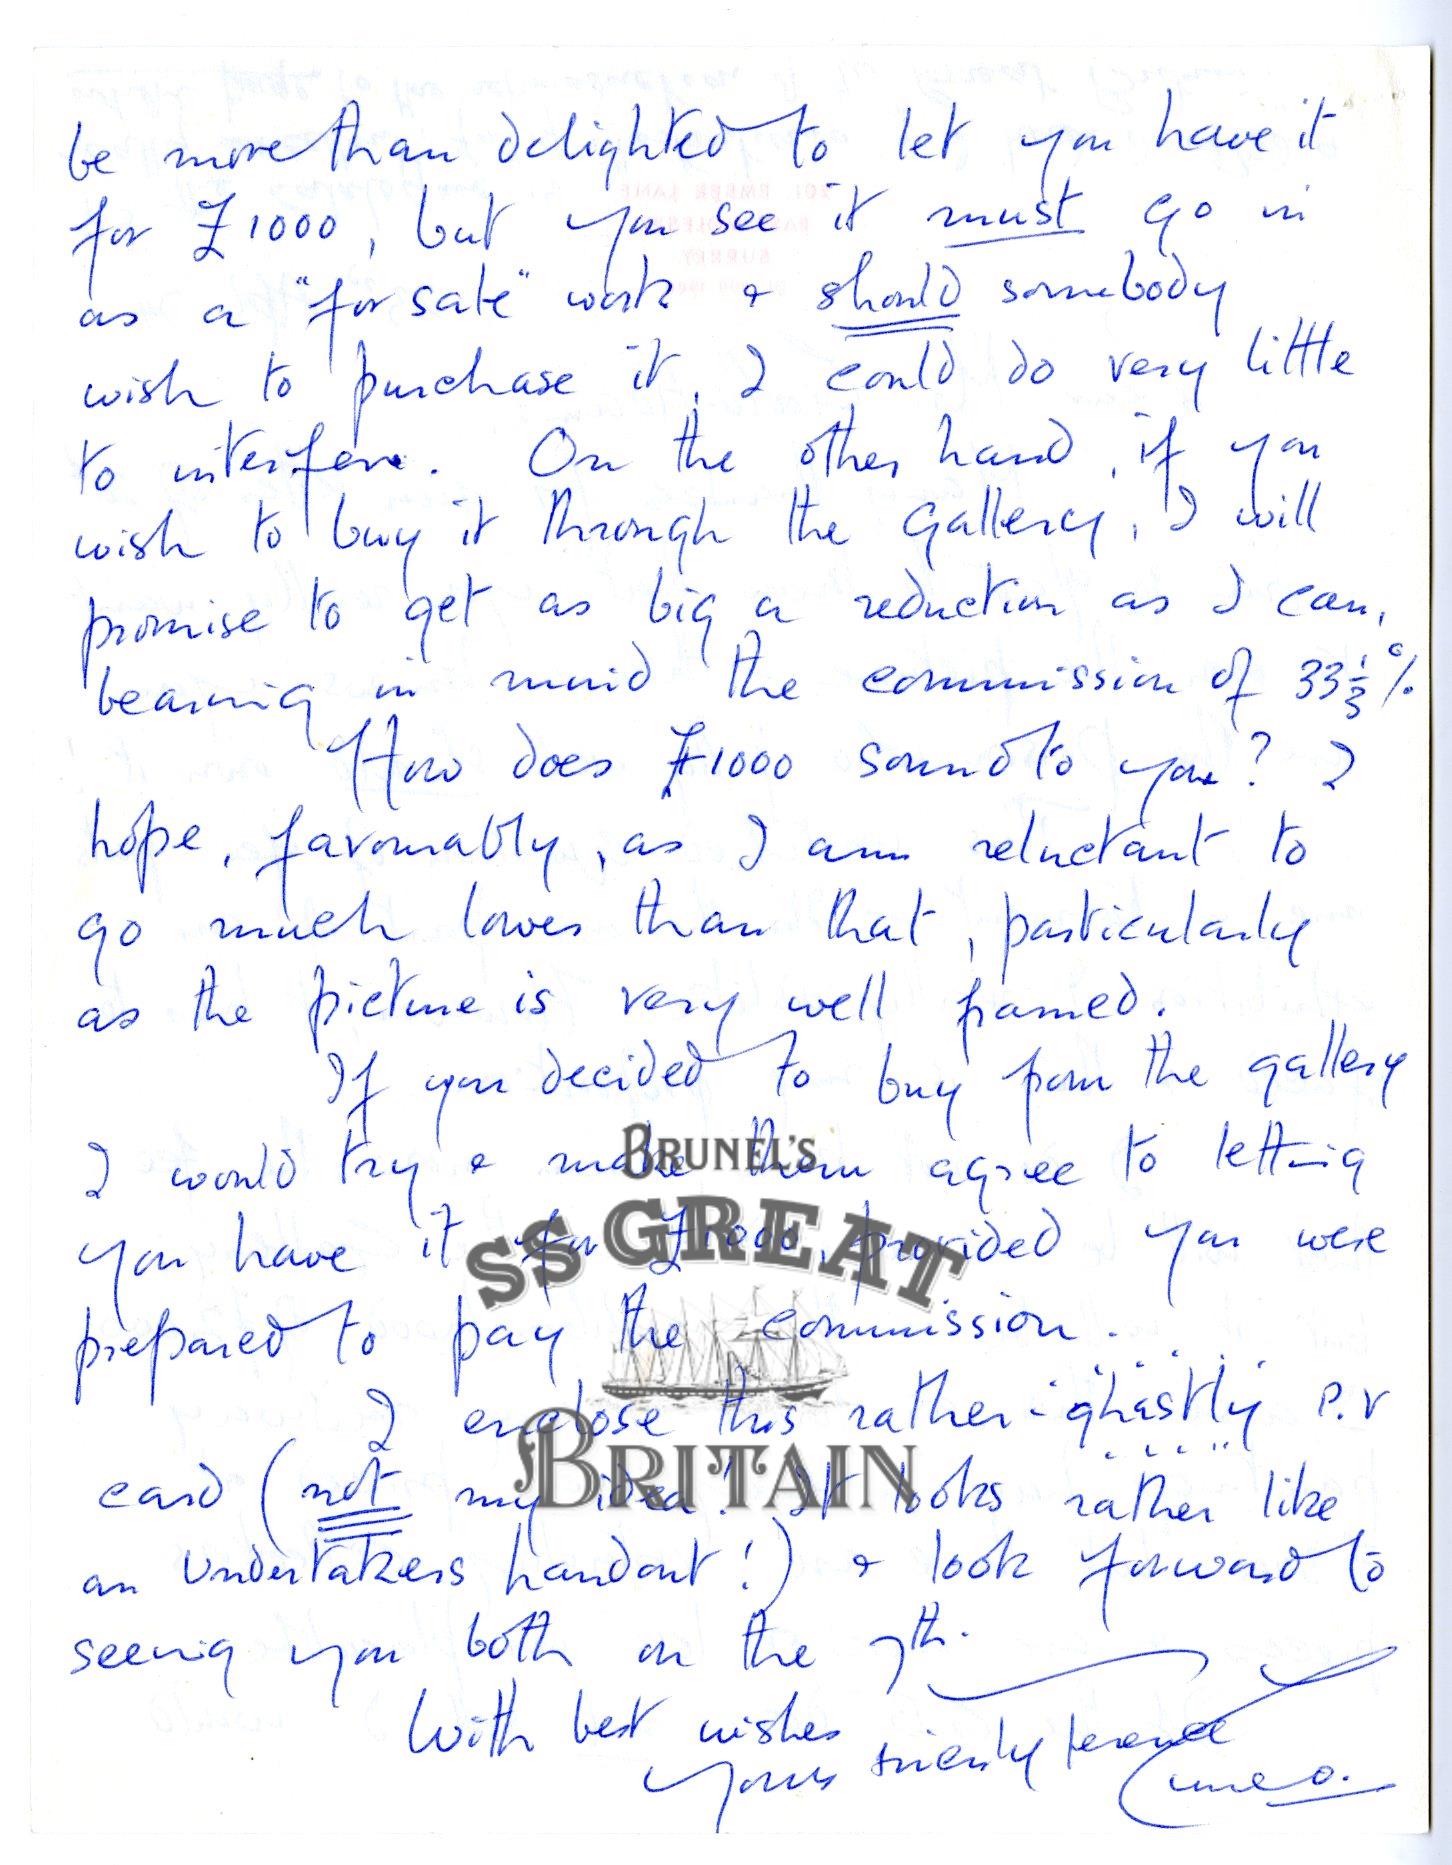 be more than delighted to let you have it
for £1000, but you see it must go in
as a "for sale" work & should somebody
wish to purchase it, I could do very little
to interfere. On the other hand, if you
wish to buy it through the gallery, I will
promise to get as big a reduction as I can,
bearing in mind the commission of 33⅓%
How does £1000 sound to you? I
hope, favourably, as I am reluctant to
go much lower than that, particularly
as the picture is very well framed.
If you decided to buy from the gallery
I would try & make them agree to letting
you have it for £1000, provided you were
prepared to pay the commission.
I enclose this rather-ghastly P.V
card (not my idea! It looks rather like
an undertakers handout!) & look forward to
seeing you both on the 7th.
With best wishes
Yours sincerely Terence
Cuneo.
BRUNEL'S
SS GREAT
BRITAIN